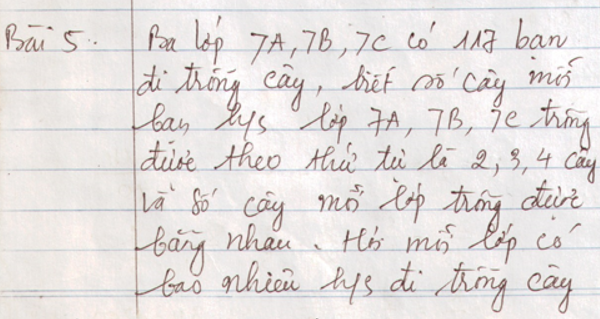 Bài 5. Ba lớp 7A, 7B, 7C có 117 bạn
đi trồng cây, biết số cây mỗi
bạn h/s lớp 7A, 7B, 7C trồng
được theo thứ tự là 2, 3, 4 cây
và số cây mỗi lớp trồng được
bằng nhau. Hỏi mỗi lớp có
bao nhiêu h/s đi trồng cây